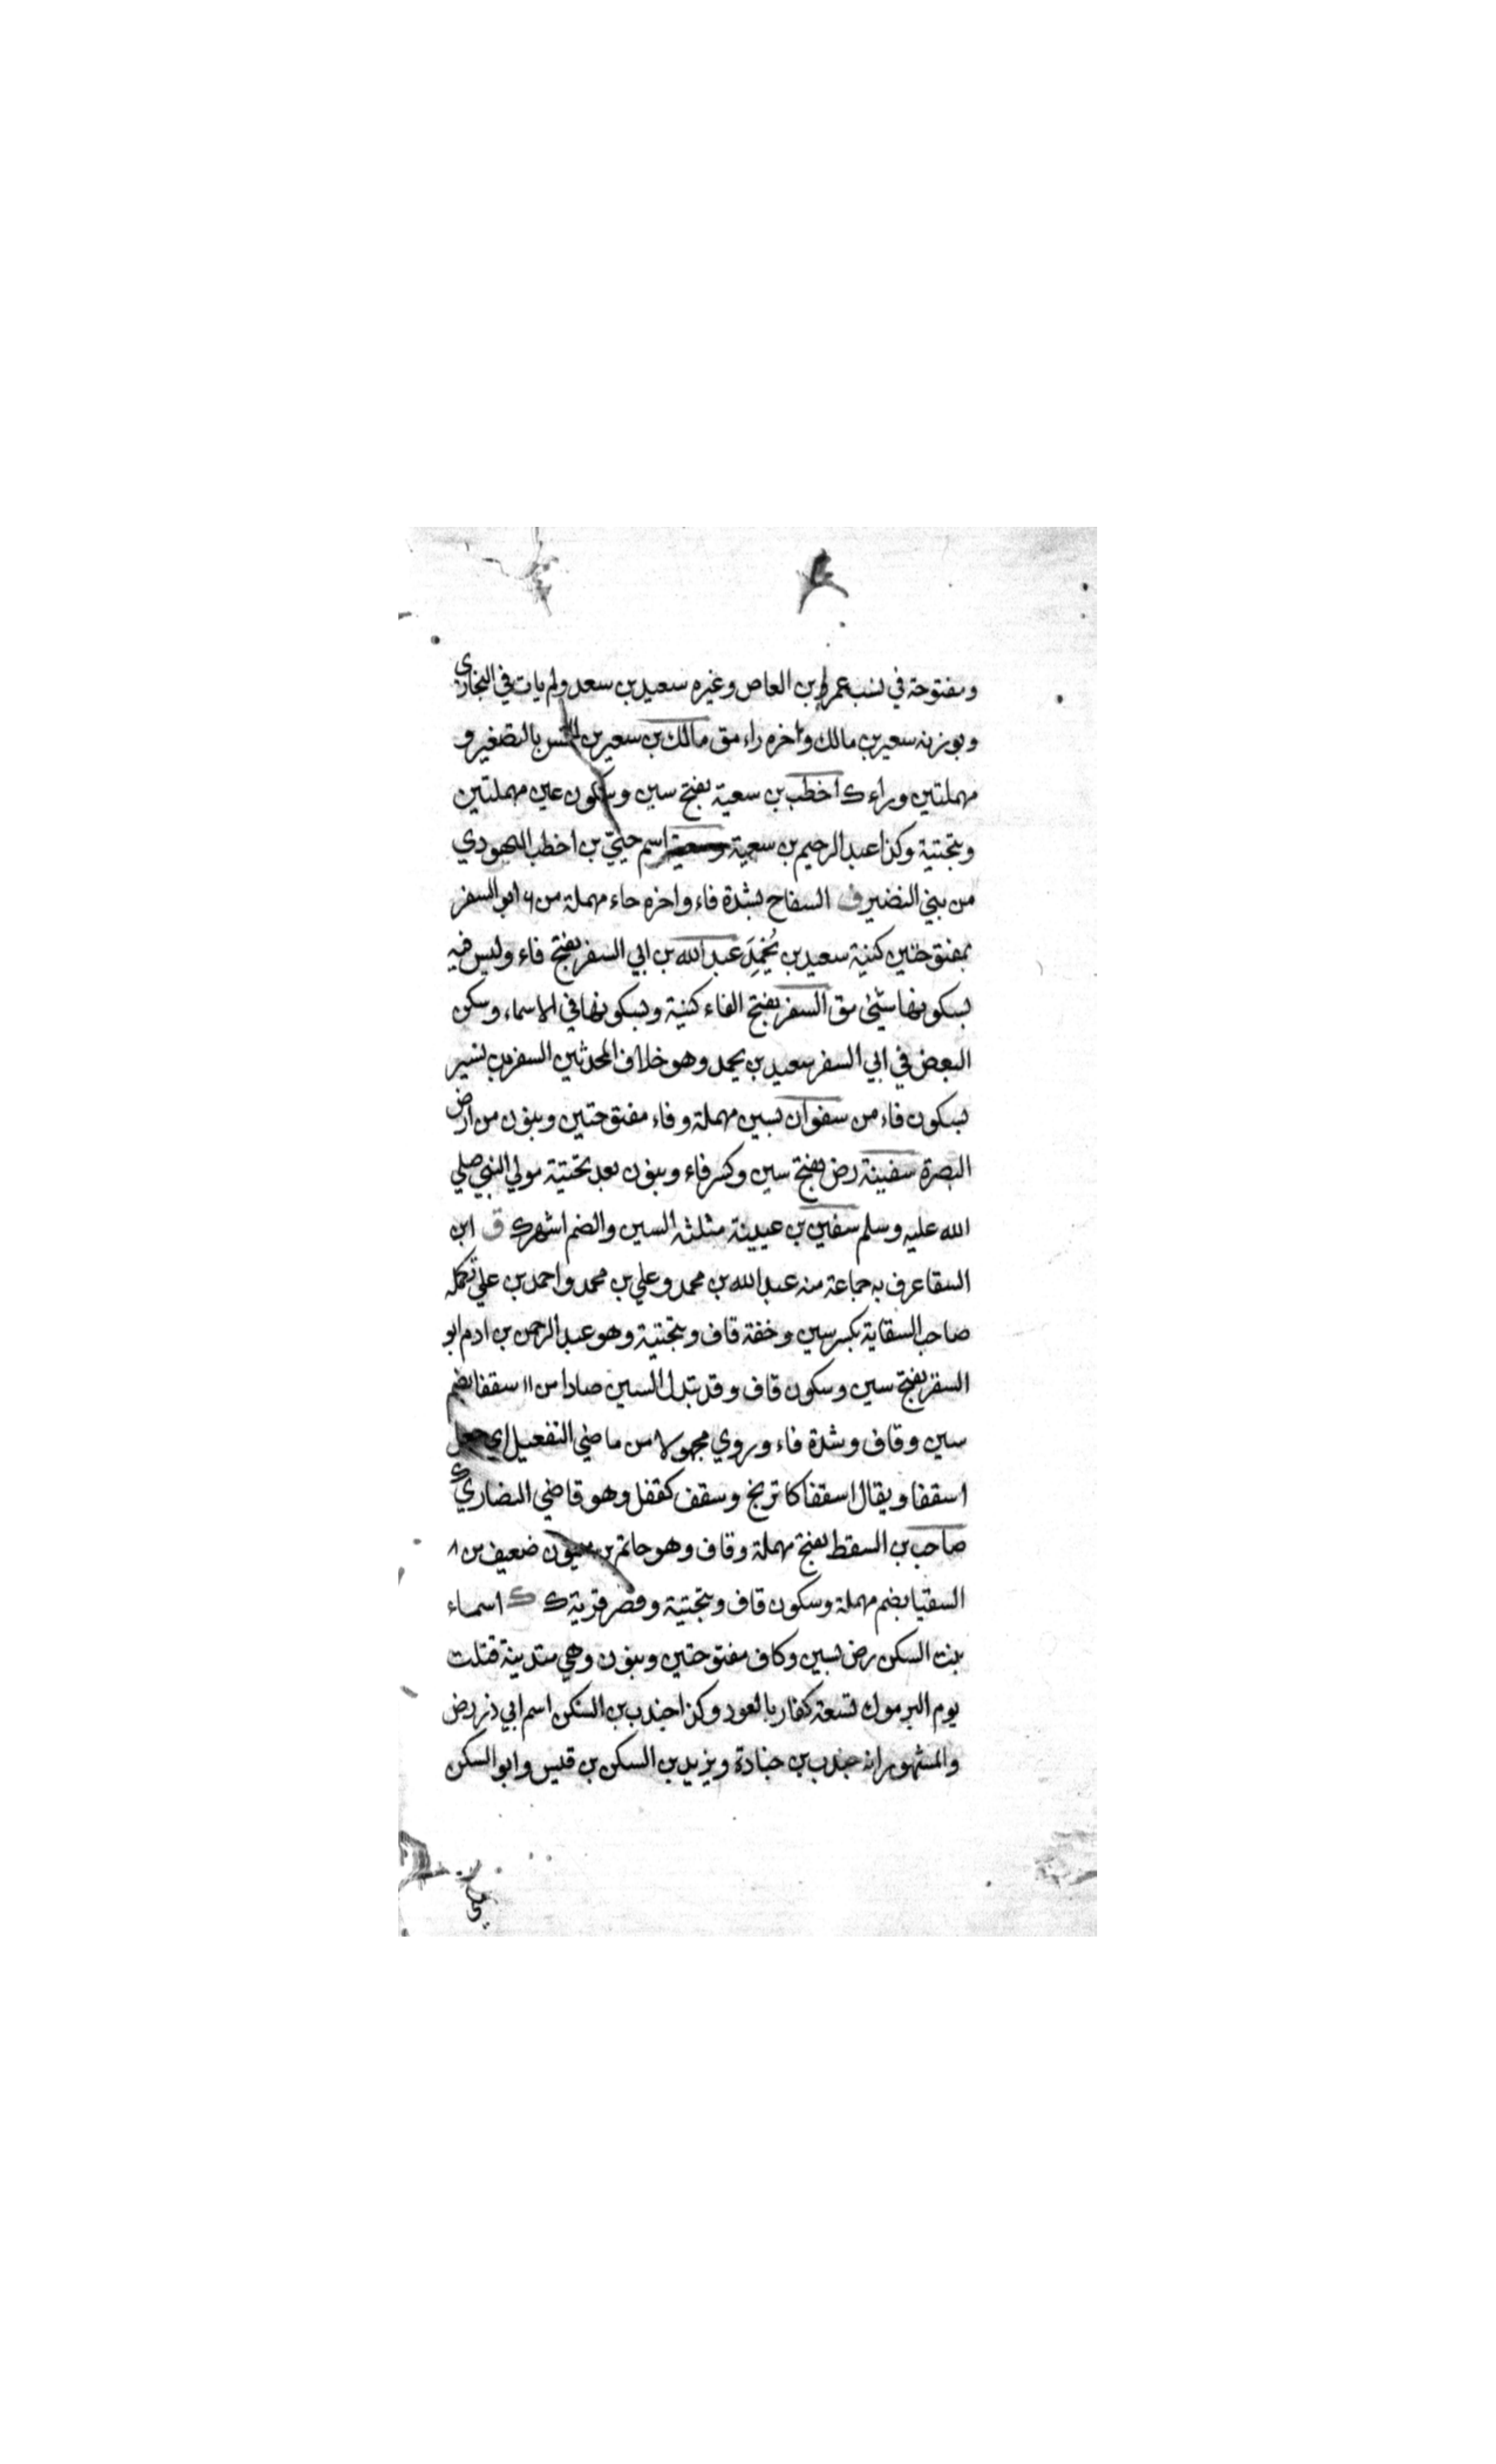 ومفتوحة في نسب عمرو بن العاص وغيره سعيد بن سعد ولم يات في البخاري
وبوزنه سعير بن مالك واخره راء مق مالك بن سعير بن الخمس بالتصغير و
مهملتين وراء ك اخطب بن سعية بفتح سين وسكون عين مهملتين
وبتحتية وكذا عبد الرحيم بن سعية اسم حيي بن اخطب اليهودي
من بني النضير ف السفاح بشدة فاء واخره حاء مهملة من ٦ ابو السفر
بمفتوحتين كنية سعيد بن يُحْمِد عبد الله بن ابي السفر بفتح فاء وليس فيه
بسكونها شيئ مق السفر بفتح الفاء كنية وبسكونها في الاسماء وسكن
البعض في ابي السفر سعيد بن يحمد وهو خلاف المحدثين السفر بن نسير
بسكون فاء من سفوان بسين مهملة وفاء مفتوحتين وبنون من ارض
البصرة سفينة رض بفتح سين وكسر فاء وبنون بعد تحتية مولي النبي صلي
الله عليه وسلم سفين بن عيينة مثلثه السين والضم اشهر ك ق ابن
السقا عرف به جماعة منه عبد الله بن محمد وعلي بن محمد واحمد بن علي
صاحب السقاية بكسر سين وخفة قاف وبتحتية وهو عبد الرحمن بن ادم ابو
السقر بفتح سين وسكون قاف وقد تبدل السين صادا من ١١ سقفا بضم
سين وقاف وشدة فاء وروي مجهولا من ماضي التفعيل اي جعل
اسقفا ويقال اسقفا كاترنج وسقف كقفل وهو قاضي النصاري ك
صاحب بن السقط بفتح مهملة وقاف وهو حاتم بن ميمون ضعيف من ٨
السقيا بضم مهملة وسكون قاف وبتحتية وقصر قرية ك ك اسماء
بنت السكن رض بسين وكاف مفتوحتين وبنون وهي متدينة قتلت
يوم اليرموك تسعة كفار بالعود وكذا جندب بن السكن اسم ابي ذر رض
والمشهور انه جندب بن جنادة ويزيد بن السكن بن قيس وابو السكن